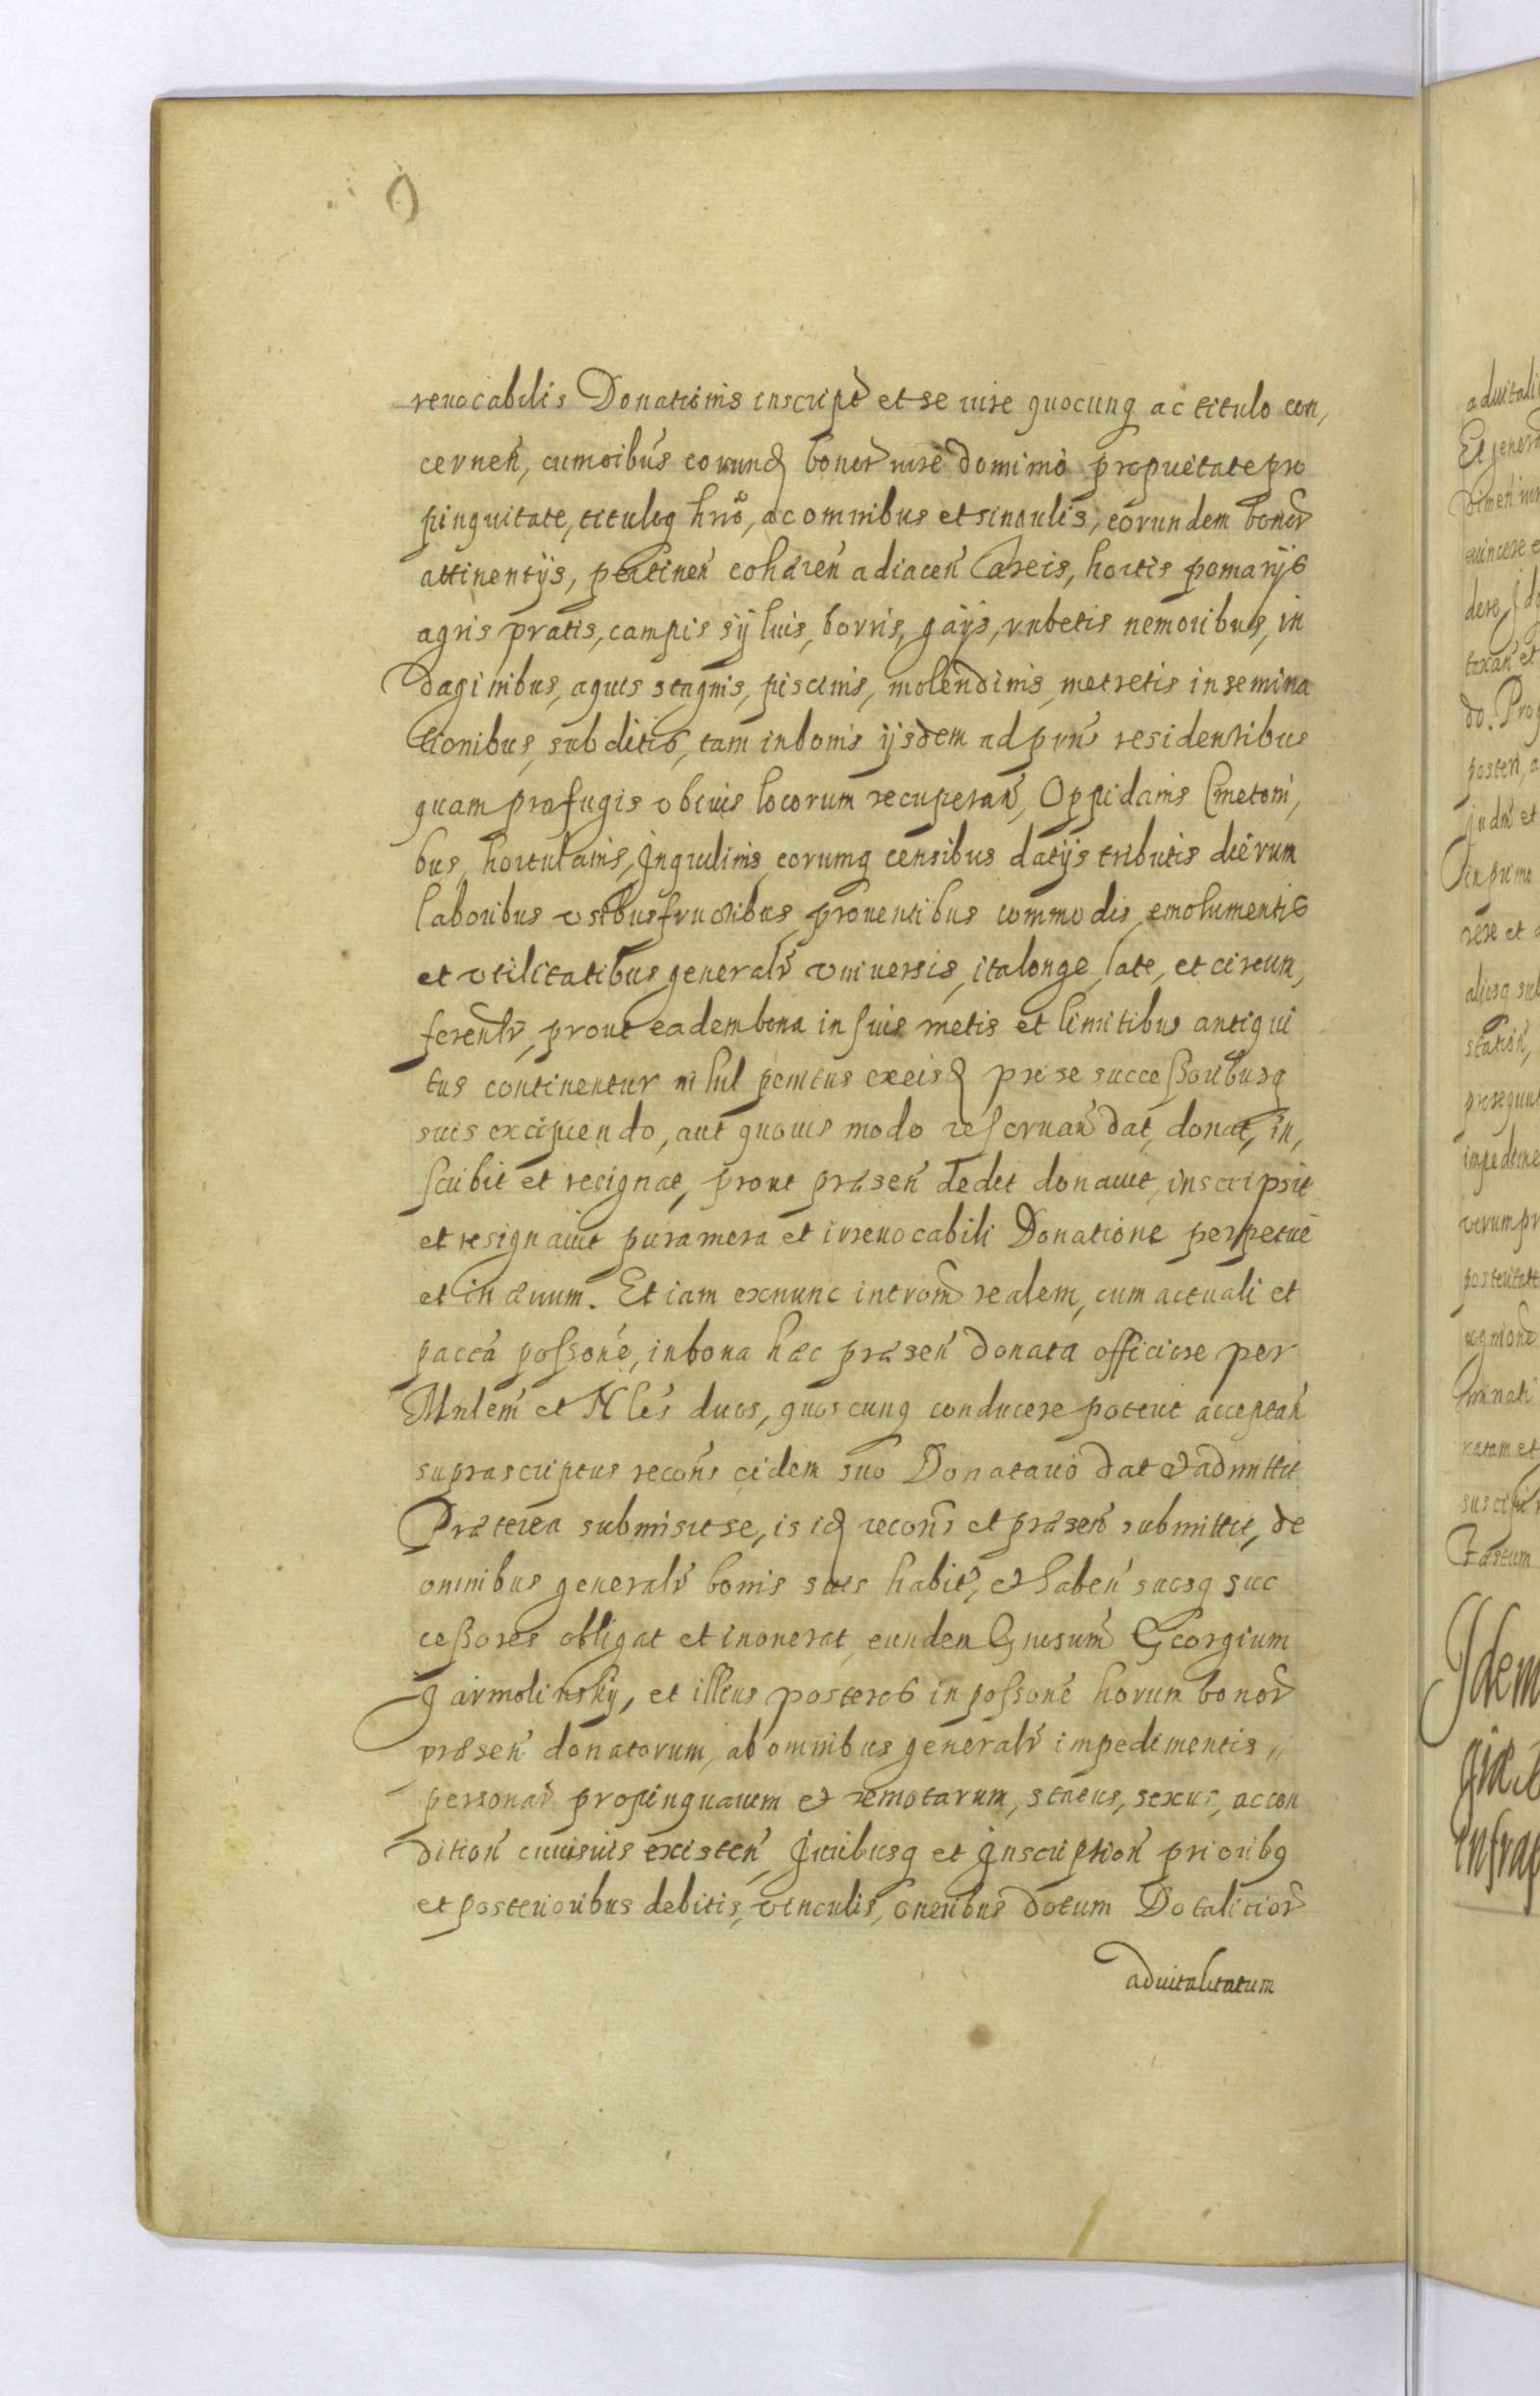 reuocabilis Donationis inscript et se iure quocunq ac titulo con,
cernen, cum oibus eorund bonor iure dominio proprietate pro
pinquitate, tituloq hrio, ac omnibus et singulis, eorundem bonor
attinentijs, pertinen cohæren adiacen areis, hortis pomarijs
agris pratis, campis syluis, borris, gays, rubetis nemoribus, in
daginibus, aquis stagnis, piscinis, molendinis, metretis insemina
tionibus, subditis, tam in bonis ijsdem ad prns residentibus
quam profugis obiuis locorum recuperan, Oppidanis Cmetoni,
bus, hortulanis, Jnquilinis, eorumq censibus datijs tributis dierum
laboribus vsibusfructibus prouentibus commodis, emolumentis
et vtilitatibus generalr vniuersis, ita longe, late, et circum,
ferentr, prout eadem bona in suis metis et limitibus antiqui
tus continentur nihil penitus ex eisd pro se successoribusq
suis excipiendo, aut quouis modo reseruan dat, donat, in,
scribit et resignat, prout præsen dedit donauit, inscripsit
et resignauit pura mera et irreuocabili Donatione perpetue
et in æuum. Et iam exnunc introm realem, cum actuali et
pacca possone, in bona hæc præsen donata officiose per
Mnlem et Nles duos, quoscunq conducere poterit acceptan
suprascriptus recons eidem suo Donatario dat et admittit
Præterea submisit se, is id recons et præsen submittit, de
omnibus generalr bonis suis habit, et haben suosq suc
cessores obligat et inonerat, eundem Gnosum Georgium
Jarmolinsky, et illius posteros in possone horum bonor
præsen donatorum, ab omnibus generalr impedimentis
personar propinquarum et remotarum, status, sexus, ac con
dition cuiusuis existen, Juribusq et Jnscription prioribq
et posterioribus debitis, vinculis, oneribus dotum Dotalitior
aduitalitatum